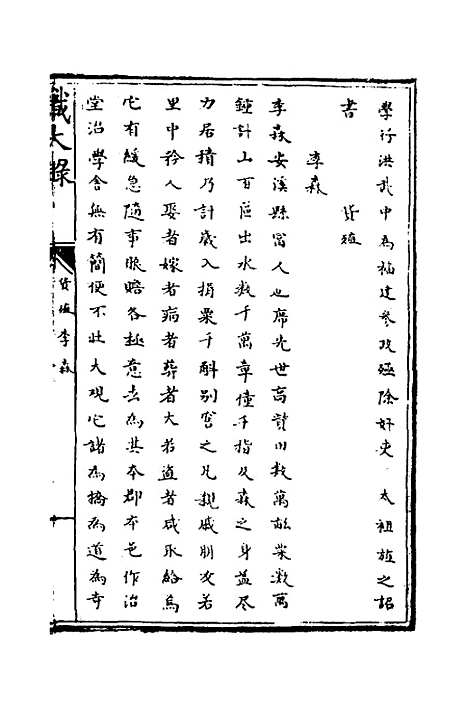 學行洪武中為福建參政殛除奸吏太祖旌之詔
書　貨殖
李森
李森安溪縣富人也席先世高貲田數萬畝粟數萬
鍾計山百區出水數千萬章僮千指及森之身益尽
力居積乃計歲入捐粟千斛別窖之凡親戚朋友若
里中矜人娶者嫁者病者葬者大若道者咸取給焉
它有緩急隨事賑賂各極意去為其本郡本邑作治
堂治學舍無有簡便不此大觀它諸為橋為道為寺
識大錄
貨殖李森